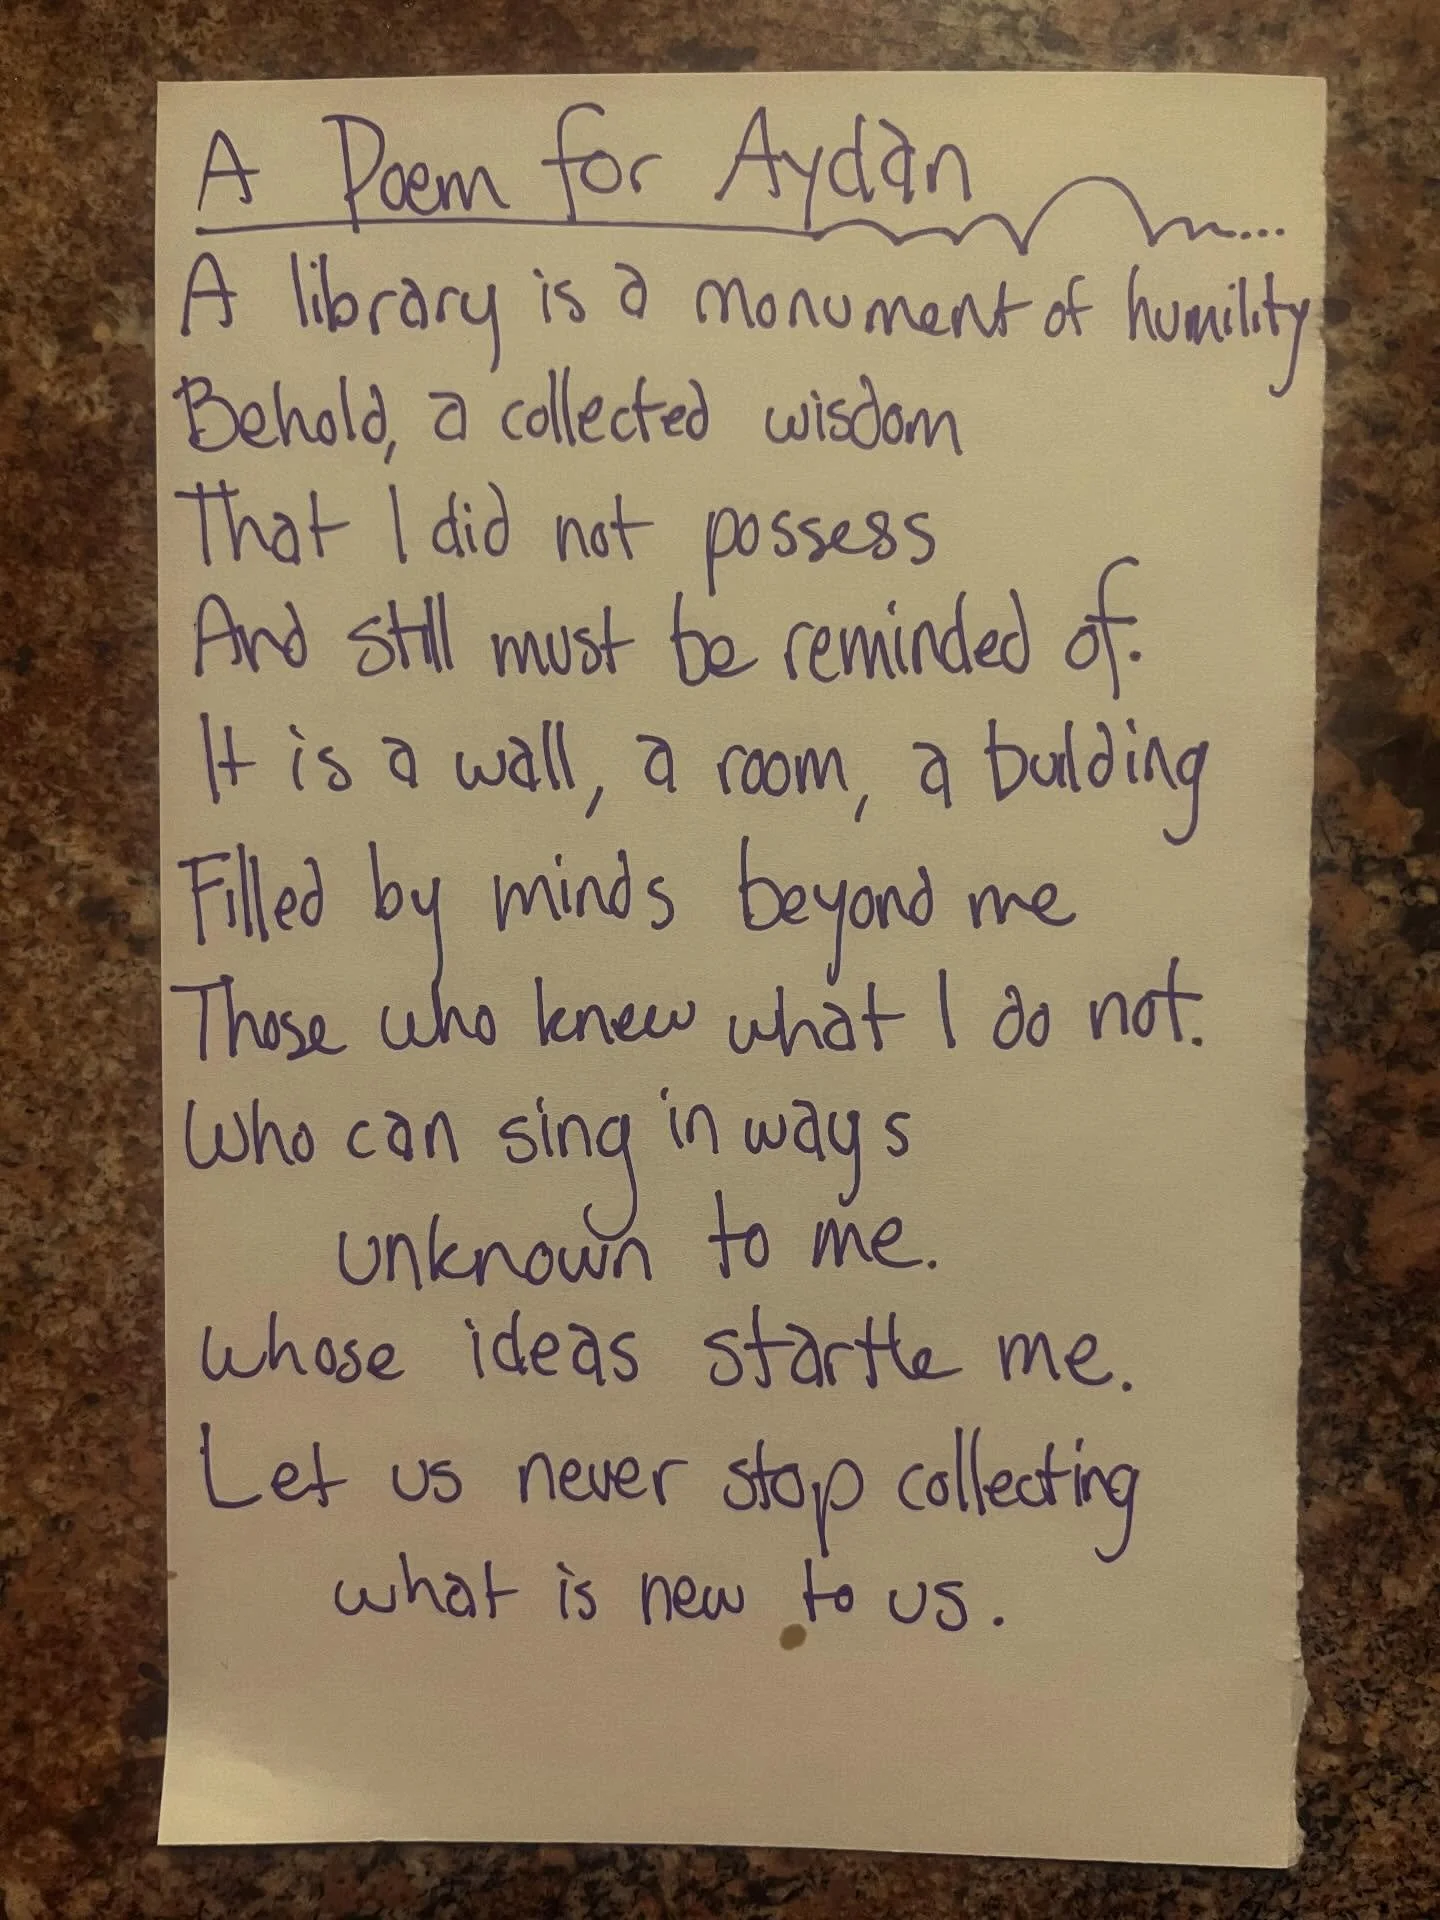 A Poem for Aydan
A library is a monument of humility
Behold, a collected wisdom
That I did not possess
And still must be reminded of.
It is a wall, a room, a building
Filled by minds beyond me
Those who knew what I do not.
Who can sing in ways
unknown to me.
Whose ideas startle me.
Let us never stop collecting
what is new to us.